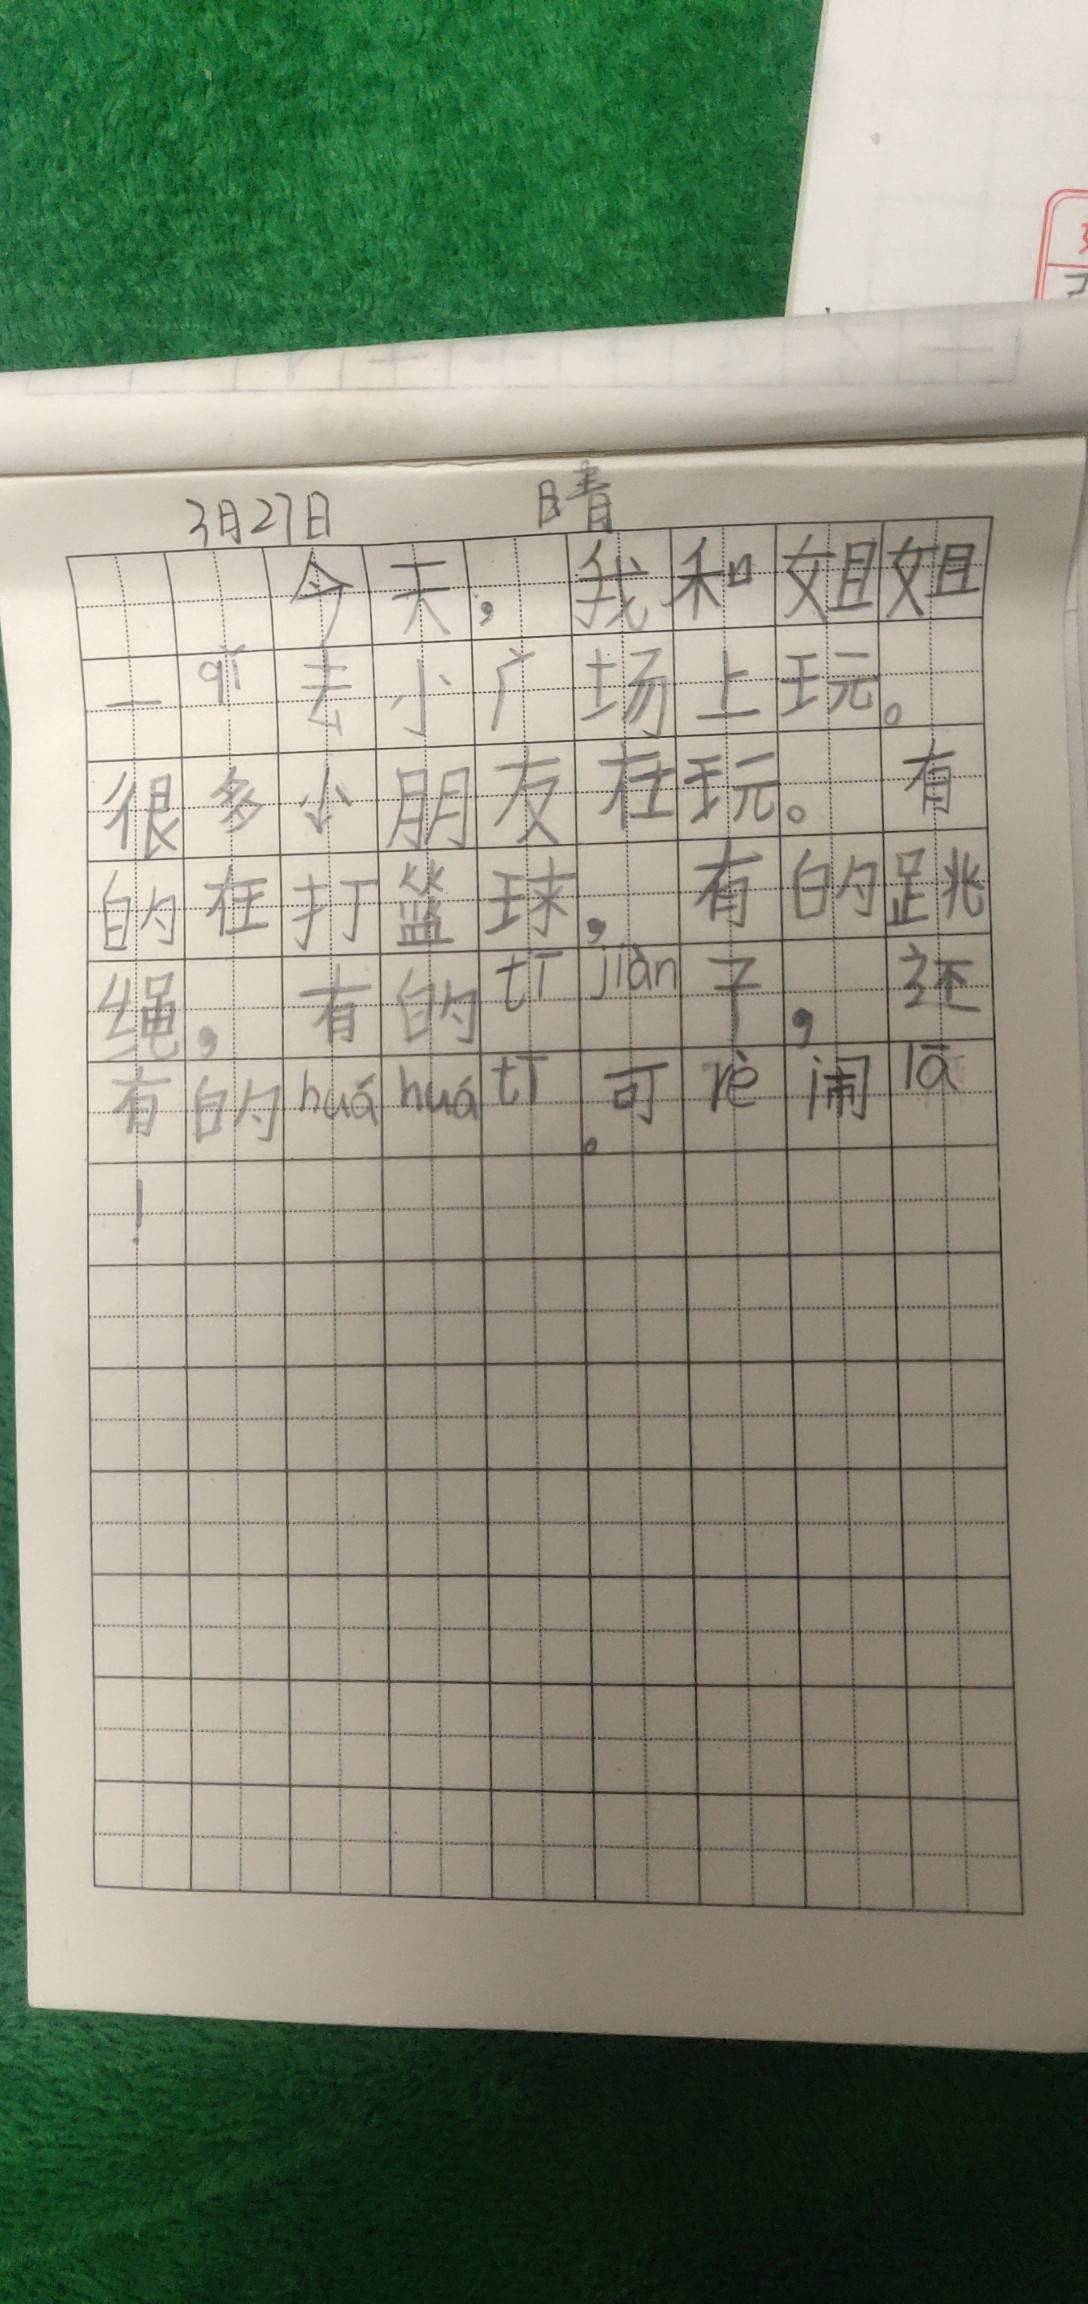 3月27日 晴
今天，我和姐姐
一qǐ去小广场上玩。
很多小朋友在玩。有
的在打篮球，有的跳
绳，有的tījiàn子，还
有的huáhuátī。可rè闹lā
！